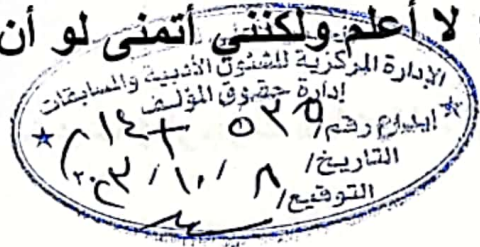 لا أعلم ولكنني أتمنى لو أن
الإدارة المركزية للشئون الأدبية والمسابقات
إدارة حقوق المؤلف
إيداع رقم/
التاريخ/ ٨ / ١٠ /
التوقيع/